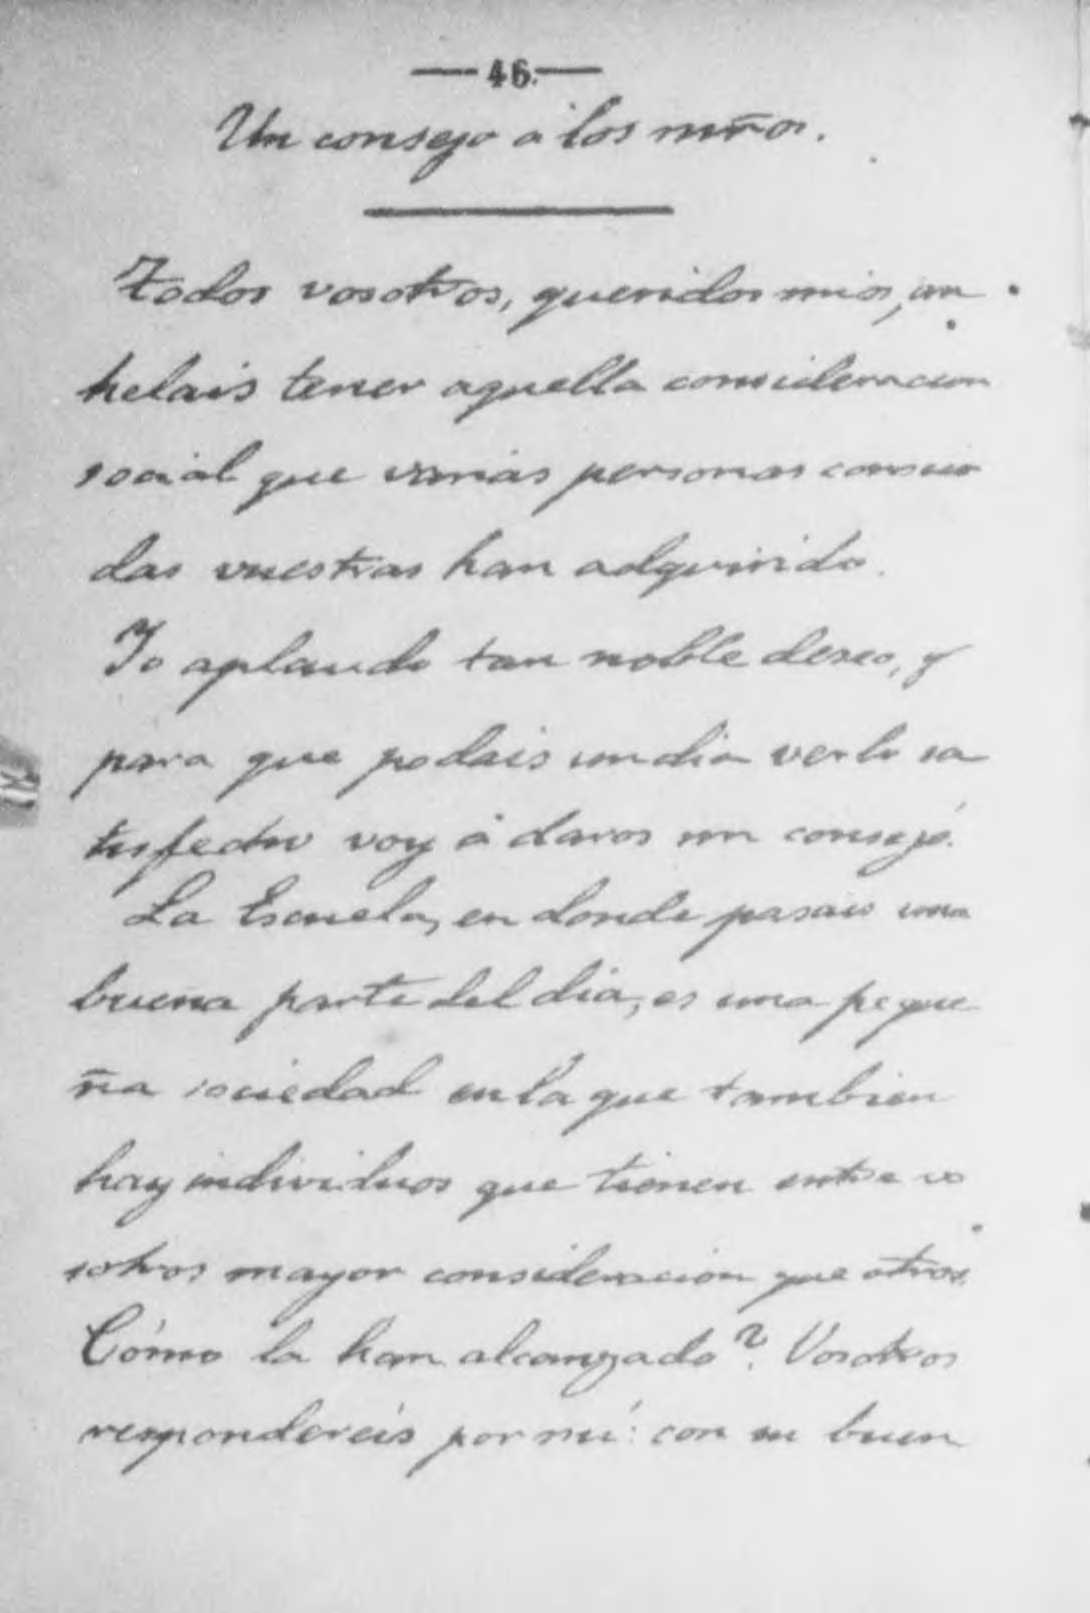 — 46. —
Un consejo á los niños.
Todos vosotros, queridos mios, an
helais tener aquella consideracion
social que varias personas conoci
das vuestras han adquirido.
Yo aplaudo tan noble deseo, y
para que podais un dia verlo sa
tisfecho voy á daros un consejo.
La Escuela, en donde pasais una
buena parte del dia, es una peque
ña sociedad en la que tambien
hay individuos que tienen entre vo
sotros mayor consideracion que otros.
Cómo la han alcanzado? Vosotros
respondereis por mí: con su buen